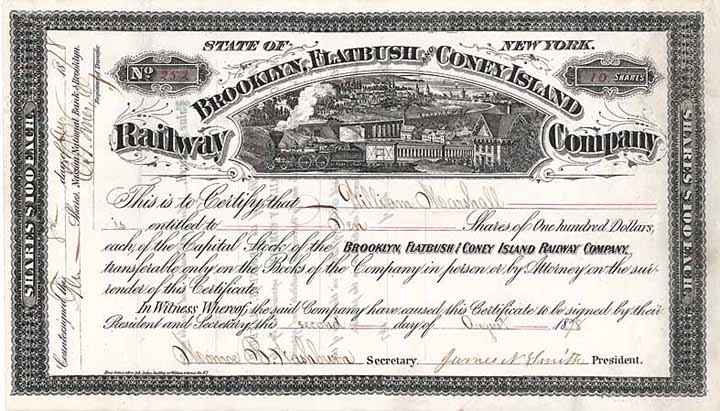 STATE OF NEW YORK.
No 252
10 SHARES
BROOKLYN, FLATBUSH AND CONEY ISLAND
Railway Company
This is to Certify that William Marshall
is entitled to Ten Shares of One hundred Dollars,
each, of the Capital Stock of the BROOKLYN, FLATBUSH & CONEY ISLAND RAILWAY COMPANY,
transferable only on the Books of the Company in person or by Attorney on the sur-
render of this Certificate.
In Witness Whereof, the said Company have caused this Certificate to be signed by their
President and Secretary, this second day of August 1878
Secretary. James N. Smith President.
SHARES $100 EACH.
SHARES $100 EACH.
Countersigned
day of 18
Shares. Nassau National Bank, Brooklyn.